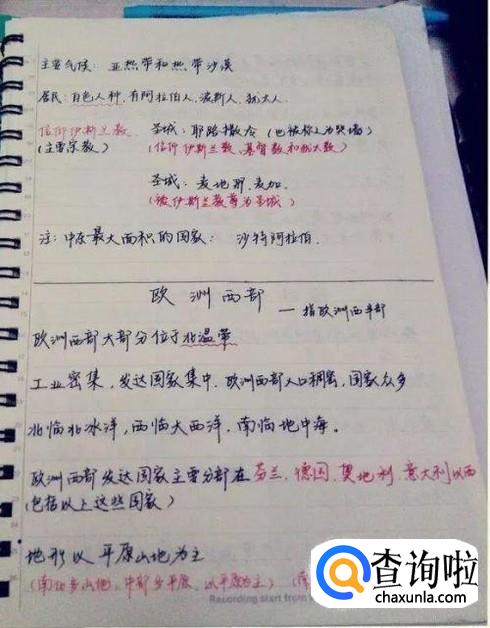 主要气候：亚热带和热带沙漠
居民：白色人种，有阿拉伯人、波斯人、犹太人
信仰伊斯兰教 圣城：耶路撒冷（也被称之为哭墙）
（主要宗教） （信仰伊斯兰教、基督教和犹太教）
圣城：麦地那、麦加
（被伊斯兰教尊为圣城）
注：中东最大面积的国家：沙特阿拉伯
欧洲西部 — 指欧洲西半部
欧洲西部大部分位于北温带
工业密集，发达国家集中，欧洲西部人口稠密，国家众多
北临北冰洋，西临大西洋，南临地中海。
欧洲西部发达国家主要分部在芬兰、德国、奥地利、意大利以西
（包括以上这些国家）
地形以平原山地为主
（南北多山地，中部多平原，以平原为主）（南
Recording start from
查询啦
chaxunla.com